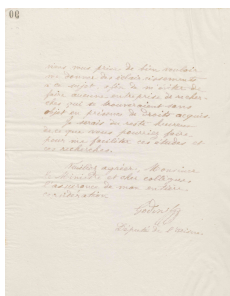 vous vous prier de bien vouloir
me donner des éclaircissements
à ce sujet afin de m'éviter de
faire aucune entreprise de recher-
ches qui se trouveraient sans
objet en présence de droits acquis.
Je serais du reste heureux
de ce que vous pourriez faire
pour me faciliter ces études et
ces recherches.
Veuillez agréer, Monsieur
le Ministre et cher collègue,
l'assurance de mon entière
considération
Député de